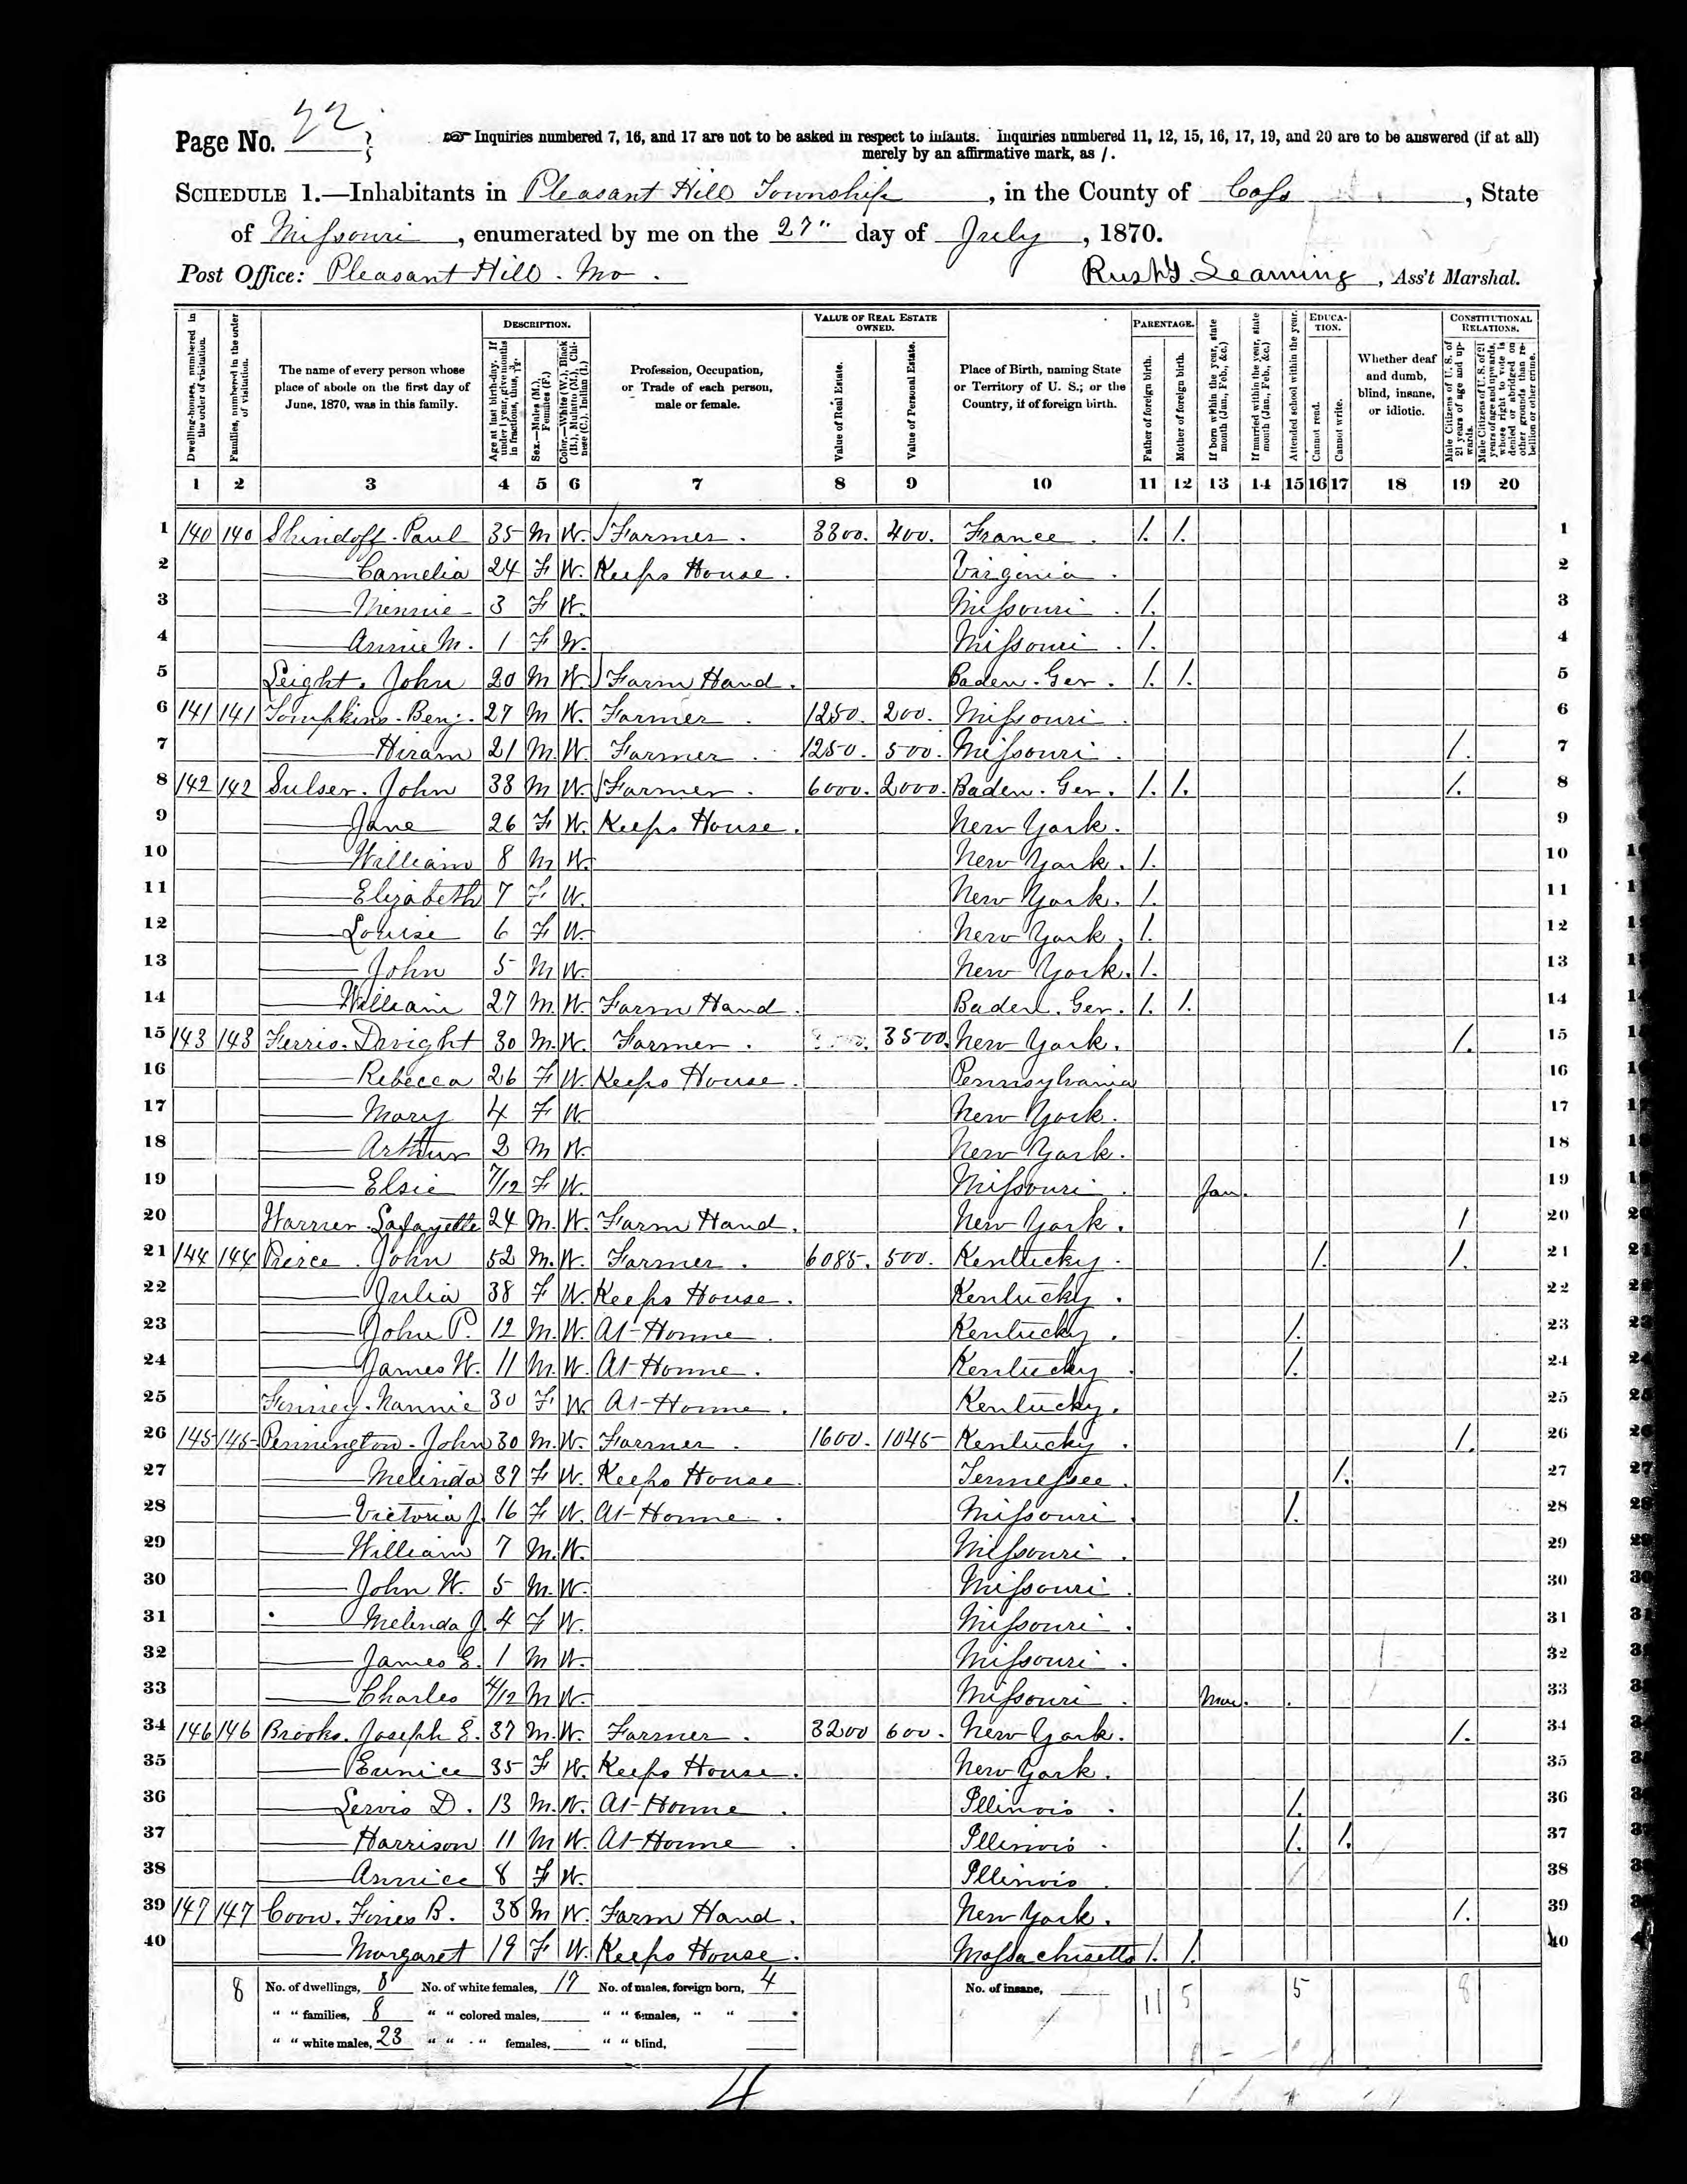 Page No. 22
☞ Inquiries numbered 7, 16, and 17 are not to be asked in respect to infants. Inquiries numbered 11, 12, 15, 16, 17, 19, and 20 are to be answered (if at all)
merely by an affirmative mark, as /.
SCHEDULE 1.—Inhabitants in Pleasant Hill Township, in the County of Cass, State
of Missouri, enumerated by me on the 27" day of July, 1870.
Post Office: Pleasant Hill. Mo. Leaming, Ass't Marshal.
Dwelling-houses, numbered in the order of visitation.
Families, numbered in the order of visitation.
The name of every person whose place of abode on the first day of June, 1870, was in this family.
DESCRIPTION.
Age at last birth-day. If under 1 year, give months in fractions, thus, 3/12.
Sex.—Males (M.), Females (F.)
Color.—White (W.), Black (B.), Mulatto (M.), Chinese (C.), Indian (I.)
Profession, Occupation, or Trade of each person, male or female.
VALUE OF REAL ESTATE OWNED.
Value of Real Estate.
Value of Personal Estate.
Place of Birth, naming State or Territory of U. S.; or the Country, if of foreign birth.
PARENTAGE.
Father of foreign birth.
Mother of foreign birth.
If born within the year, state month (Jan., Feb., &c.)
If married within the year, state month (Jan., Feb., &c.)
Attended school within the year.
EDUCATION.
Cannot read.
Cannot write.
Whether deaf and dumb, blind, insane, or idiotic.
CONSTITUTIONAL RELATIONS.
Male Citizens of U. S. of 21 years of age and upwards.
Male Citizens of U. S. of 21 years of age and upwards, whose right to vote is denied or abridged on other grounds than rebellion or other crime.
1 2 3 4 5 6 7 8 9 10 11 12 13 14 15 16 17 18 19 20
1 140 140 Shindoff. Paul 35 M W. Farmer. 3300. 400. France. /. /. 1
2 —— Camelia 24 F W. Keeps House. Virginia. 2
3 —— Minnie 3 F W. Missouri. /. 3
4 —— Annie M. 1 F W. Missouri. /. 4
5 Leight. John 20 M W. Farm Hand. Baden. Ger. /. /. 5
6 141 141 Tompkins. Benj. 27 M W. Farmer. 1250. 200. Missouri. 6
7 —— Hiram 21 M. W. Farmer. 1250. 500. Missouri. /. 7
8 142 142 Sulser. John 38 M W. Farmer. 6000. 2000. Baden. Ger. /. /. /. 8
9 —— Jane 26 F W. Keeps House. New York. 9
10 —— William 8 M W. New York. /. 10
11 —— Elizabeth 7 F W. New York. /. 11
12 —— Louise 6 F W. New York. /. 12
13 —— John 5 M W. New York. /. 13
14 —— William 27 M. W. Farm Hand. Baden. Ger. /. /. 14
15 143 143 Ferris. Dwight 30 M. W. Farmer. 3500. New York. /. 15
16 —— Rebecca 26 F W. Keeps House. Pennsylvania 16
17 —— Mary 4 F W. New York. 17
18 —— Arthur 2 M W. New York. 18
19 —— Elsie 7/12 F W. Missouri. Jan. 19
20 Warner. Lafayette 24 M. W. Farm Hand. New York. / 20
21 144 144 Pierce. John 52 M. W. Farmer. 6085. 500. Kentucky. /. /. 21
22 —— Julia 38 F W. Keeps House. Kentucky. 22
23 —— John P. 12 M. W. At Home. Kentucky. /. 23
24 —— James W. 11 M. W. At Home. Kentucky. /. 24
25 Finney. Nannie 30 F W At Home. Kentucky. 25
26 145 145 Pennington. John 30 M. W. Farmer. 1600. 1045 Kentucky. /. 26
27 —— Melinda 37 F W. Keeps House. Tennessee. /. 27
28 —— Victoria J. 16 F W. At Home. Missouri. /. 28
29 —— William 7 M. W. Missouri. 29
30 —— John W. 5 M. W. Missouri. 30
31 —— Melinda J. 4 F W. Missouri. 31
32 —— James E. 1 M W. Missouri. 32
33 —— Charles 4/12 M W. Missouri. Mar. 33
34 146 146 Brooks. Joseph E. 37 M. W. Farmer. 3200 600. New York. /. 34
35 —— Eunice 35 F W. Keeps House. New York. 35
36 —— Lewis D. 13 M. W. At Home. Illinois. /. 36
37 —— Harrison 11 M W. At Home. Illinois. /. /. 37
38 —— Annice 8 F W. Illinois. / 38
39 147 147 Coon. B. 38 M W. Farm Hand. New York. /. 39
40 —— Margaret 19 F W. Keeps House. Massachusetts /. /. 40
8 No. of dwellings, 8 No. of white females, 17 No. of males, foreign born, 4 No. of insane, 11 5 5 8
" " families, 8 " " colored males, " " females, " "
" " white males, 23 " " " females, " " blind,
4